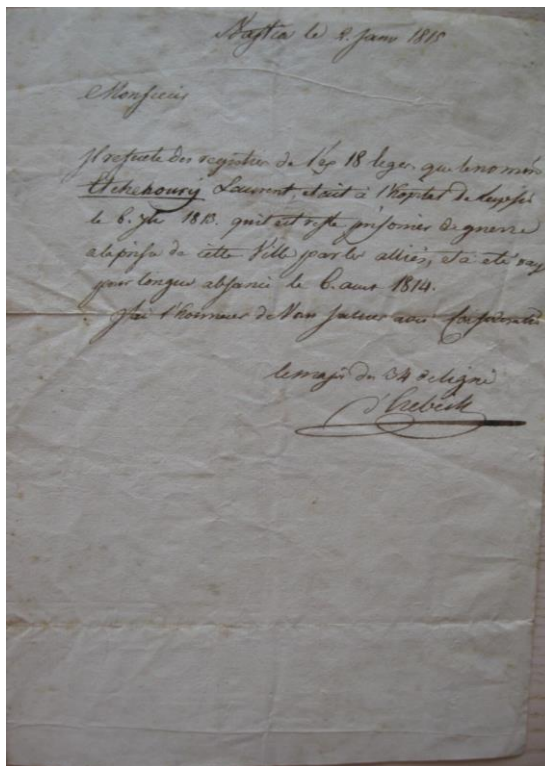 Bastia le 2. Janv 1815
Monsieur
Il resulte des registres de l'ex 18 leger, que le nommé
Etchehoury Laurent, etait à l'hopital de
le 6. 7bre 1813. qu'il est resté prisonier de guerre
a la prise de cette Ville par les alliés, et a été rayé
pour longue absence le 6. aout 1814.
J'ai l'honneur de Vous saluer avec Consideration
le major du 34 de ligne